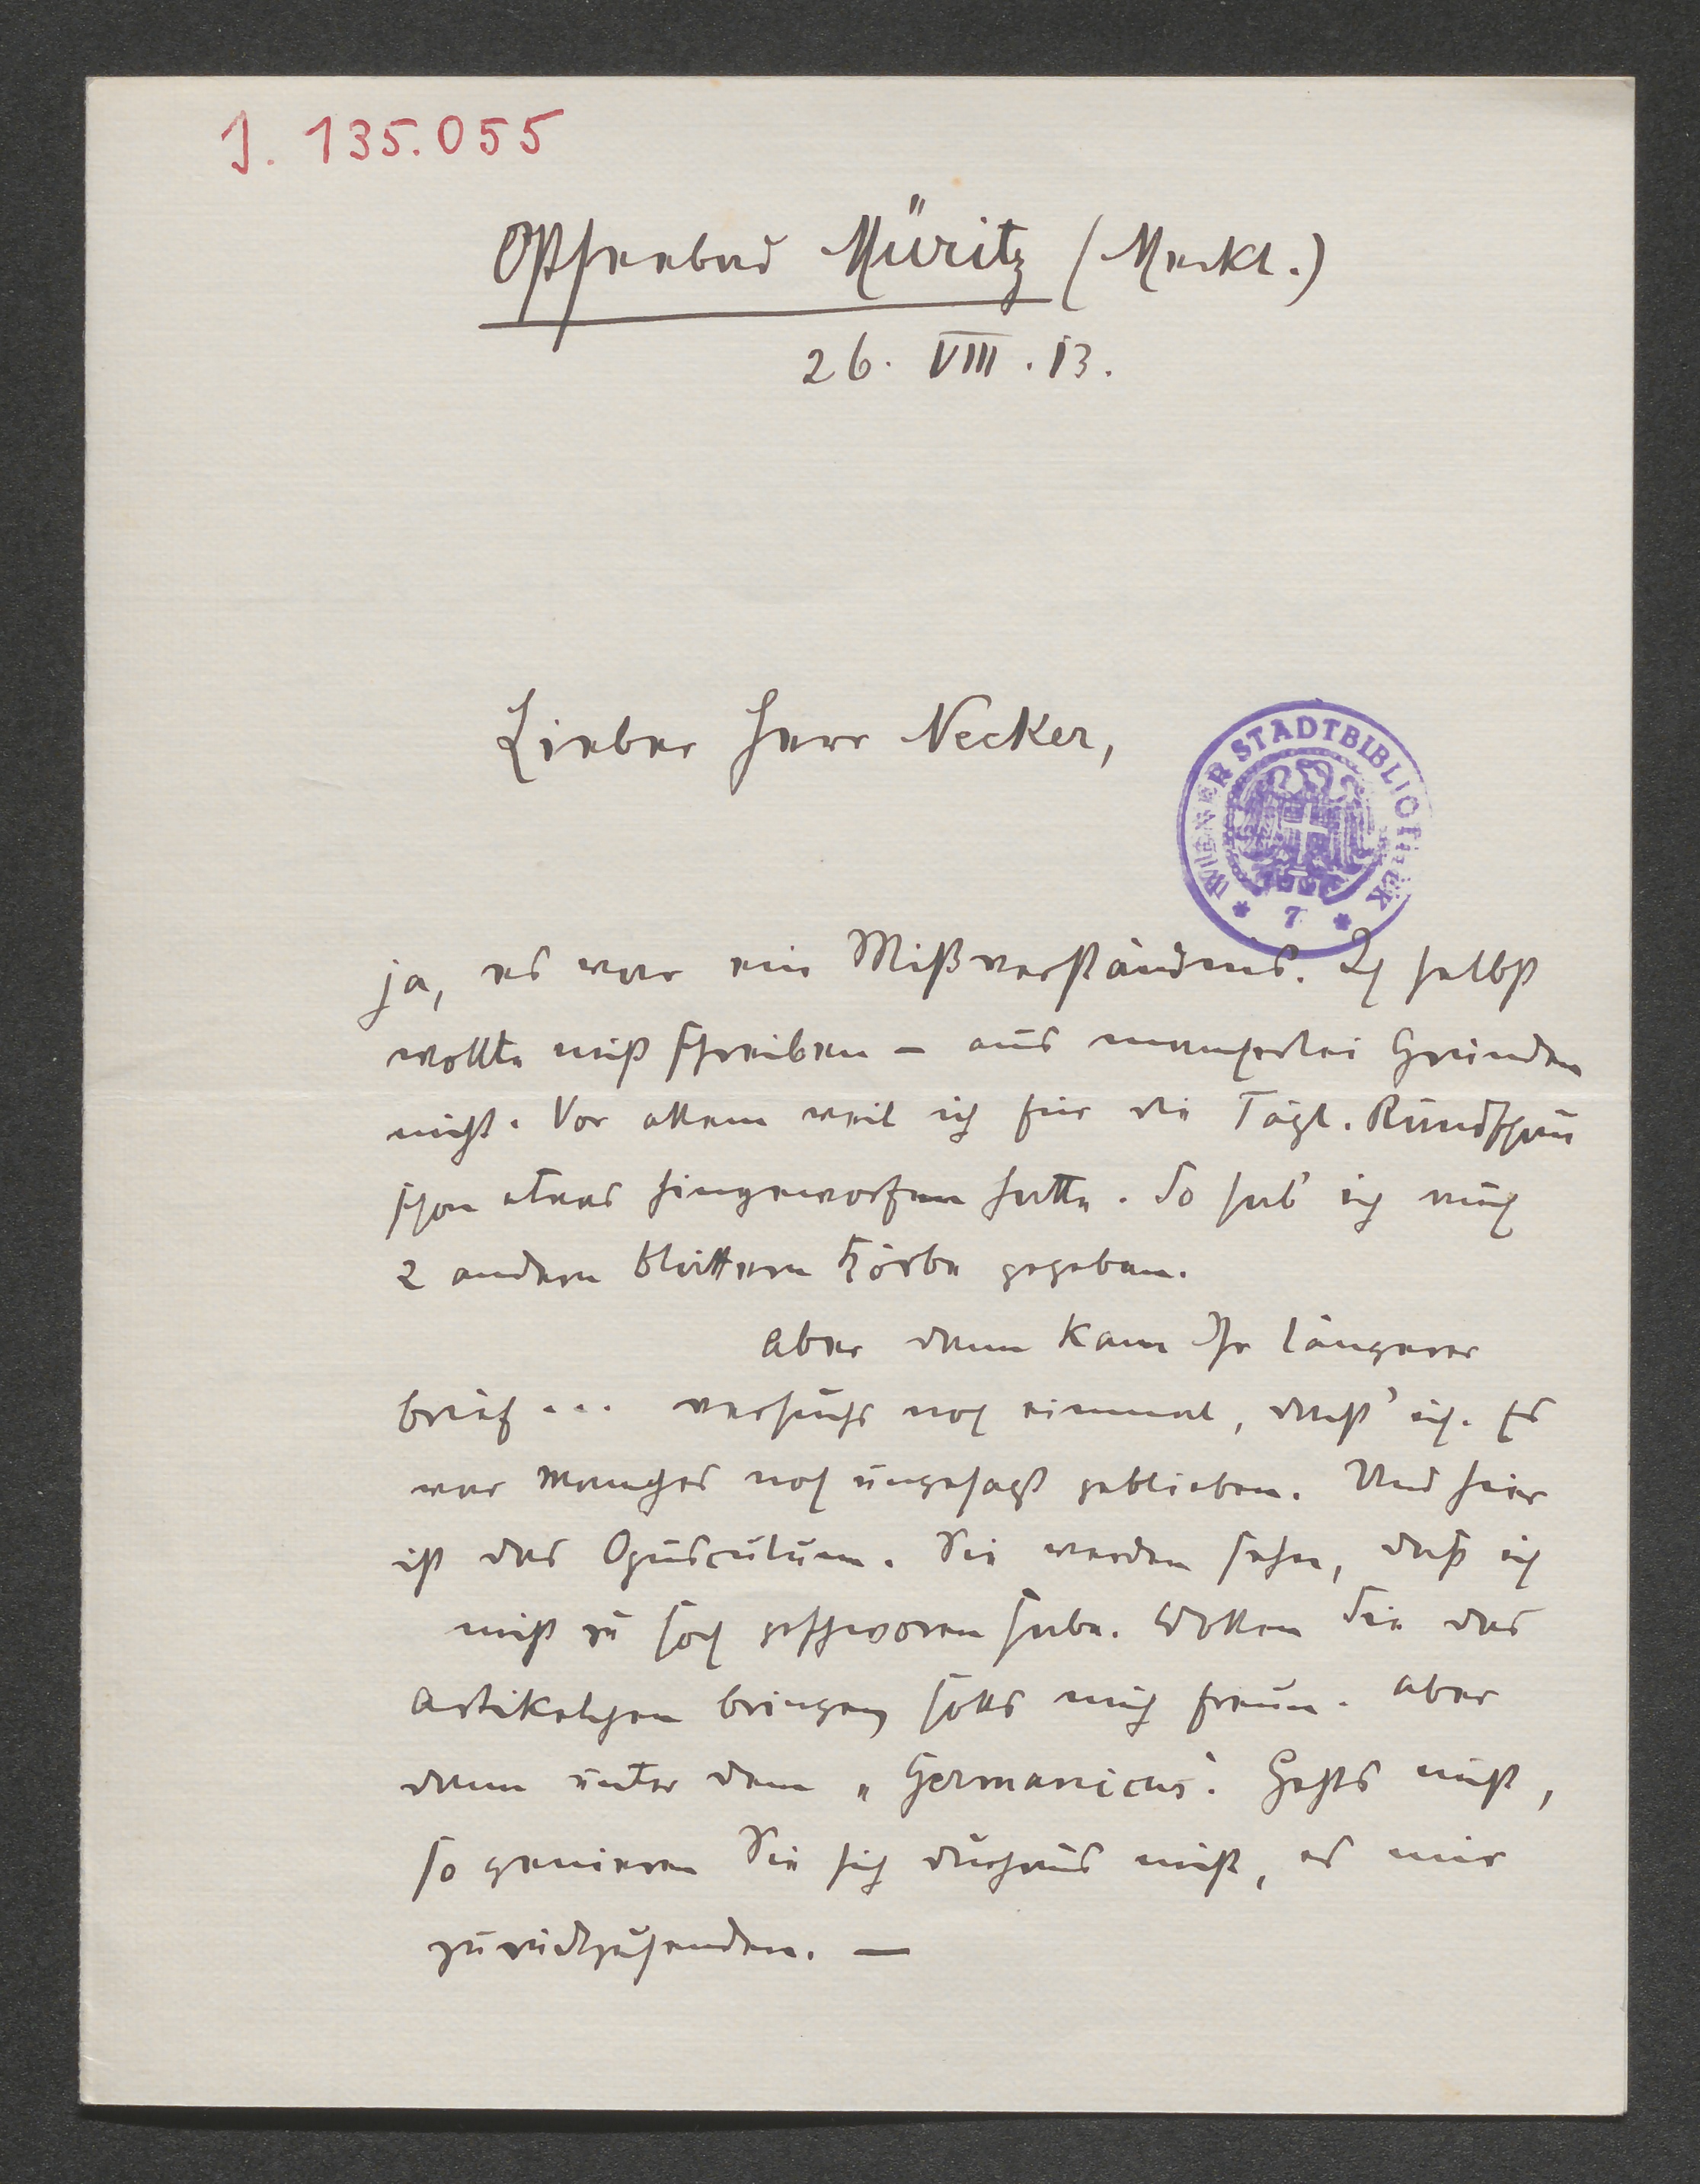 J. 135.055
Ostseebad Müritz (Meckl.)
26. VIII. 13.
Lieber Herr Necker,
WIENER STADTBIBLIOTHEK
* 7 *
ja, es war ein Mißverständnis. Ich selbst
wollte nicht schreiben – aus mancherlei Gründen
nicht. Vor allem weil ich für die Tägl. Rundschau
schon etwas hingeworfen hatte. So hab' ich auch
2 andern Blättern Körbe gegeben.
Aber dann kam Ihr längerer
Brief ... versuchs noch einmal, dacht' ich. Es
war manches noch ungesagt geblieben. Und hier
ist das Opusculum. Sie werden sehn, daß ich
nicht zu hoch geschworen habe. Wollen Sie das
Artikelchen bringen, solls mich freun. Aber
dann unter dem „Germanicus". Gehts nicht,
so genieren Sie sich durchaus nicht, es mir
zurückzusenden. —